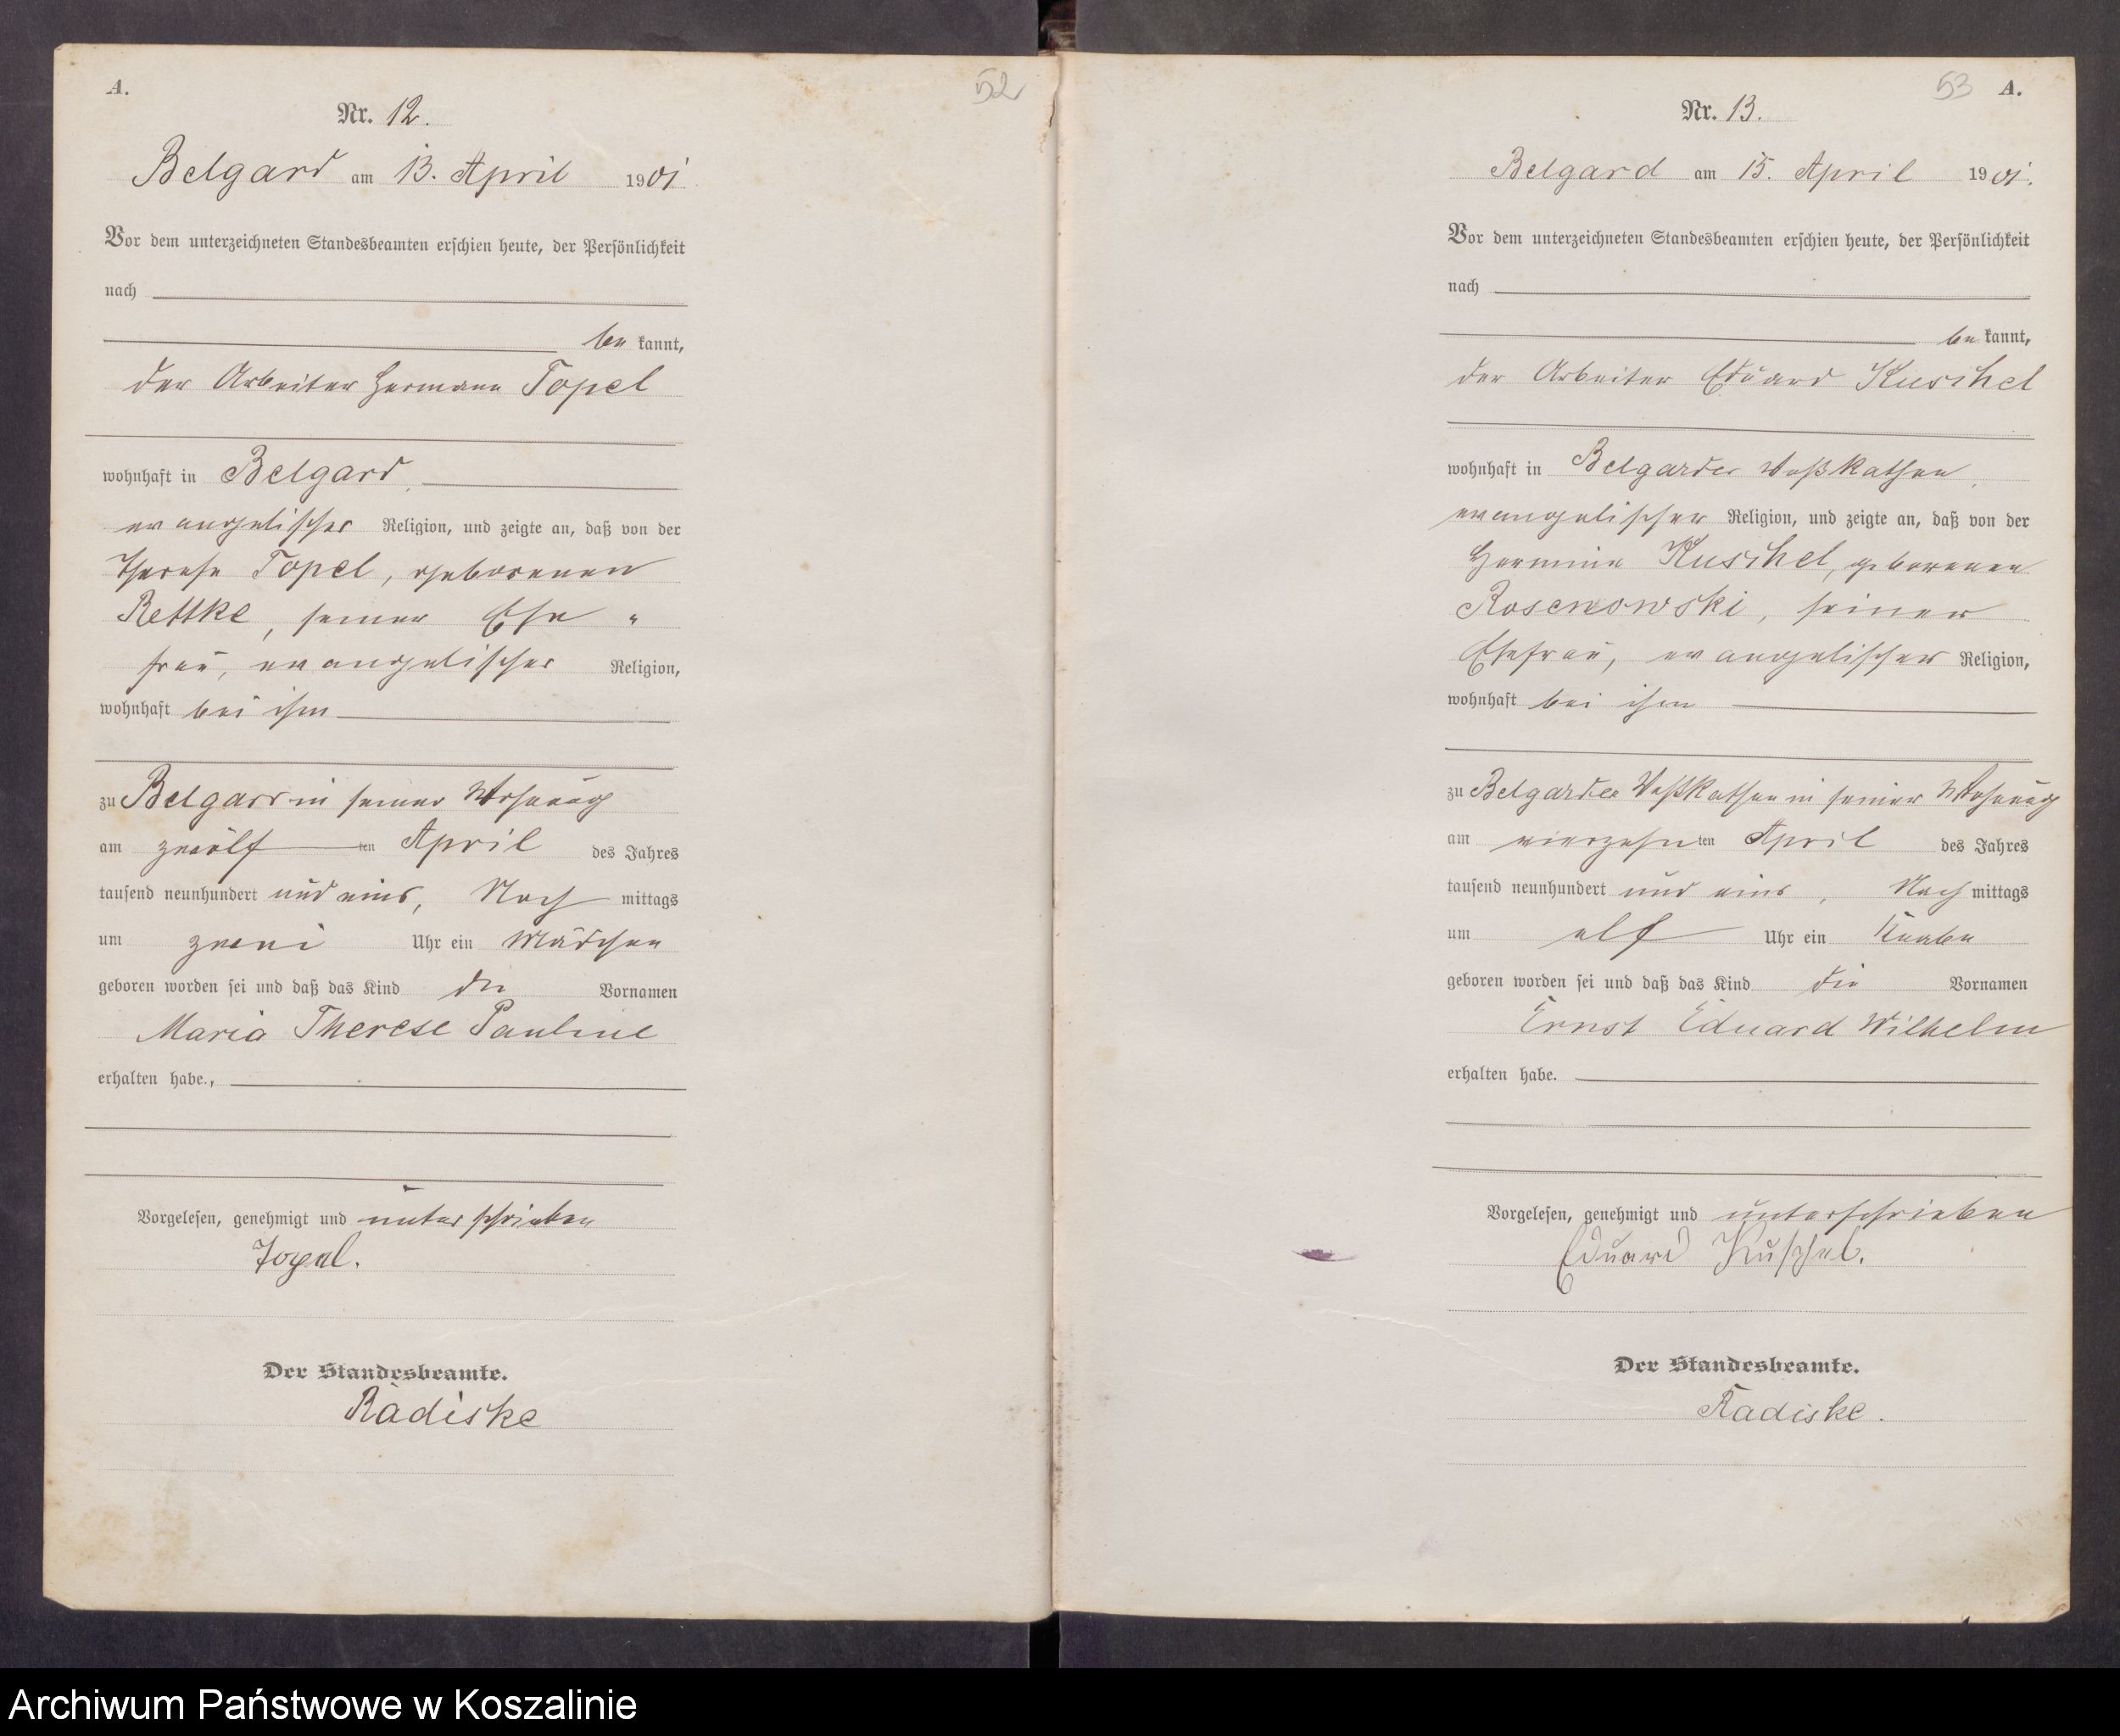 A.
52
Nr. 12.
Belgard am 13. April 1901
Vor dem unterzeichneten Standesbeamten erschien heute, der Persönlichkeit
nach
be kannt,
der Arbeiter Hermann Topel
wohnhaft in Belgard,
evangelischer Religion, und zeigte an, daß von der
Therese Topel, geborenen
Rettke, seiner Ehe "
frau, evangelischer Religion,
wohnhaft bei ihm
zu Belgard in seiner Wohnung
am zwölf ten April des Jahres
tausend neunhundert und eins, Nach mittags
um zwei Uhr ein Mädchen
geboren worden sei und daß das Kind die Vornamen
Maria Therese Pauline
erhalten habe.,
Vorgelesen, genehmigt und unterschrieben
Topel.
Der Standesbeamte.
Radiske
53 A.
Nr. 13.
Belgard am 15. April 1901.
Vor dem unterzeichneten Standesbeamten erschien heute, der Persönlichkeit
nach
be kannt,
der Arbeiter Eduard Kuschel
wohnhaft in Belgarder Voßkathen,
evangelischer Religion, und zeigte an, daß von der
Hermine Kuschel, geborenen
Rosenowski, seiner
Ehefrau, evangelischer Religion,
wohnhaft bei ihm
zu Belgarder Voßkathen in seiner Wohnung
am vierzehn ten April des Jahres
tausend neunhundert und eins, Nach mittags
um elf Uhr ein Knabe
geboren worden sei und daß das Kind die Vornamen
Ernst Eduard Wilhelm
erhalten habe.
Vorgelesen, genehmigt und unterschrieben
Eduard Kuschel.
Der Standesbeamte.
Radiske.
Archiwum Państwowe w Koszalinie